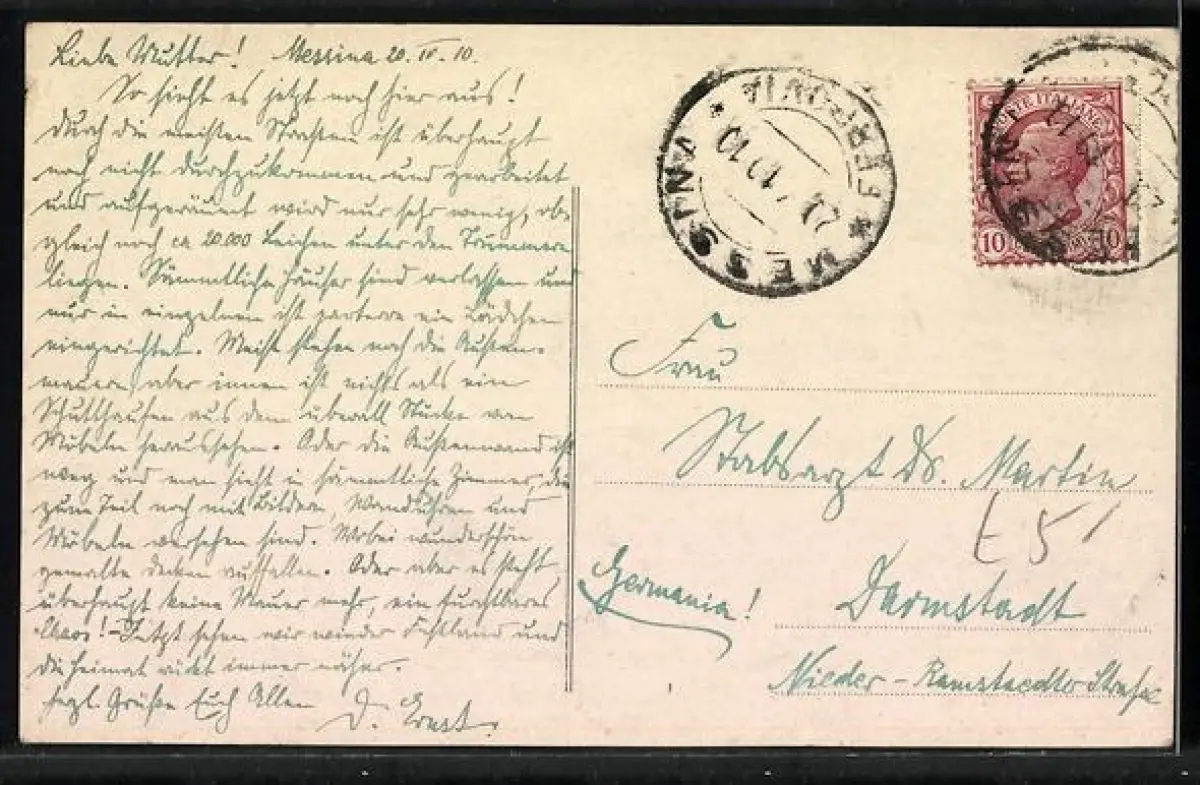 Liebe Mutter! Messina 20. IV. 10.
So sieht es jetzt noch hier aus!
Durch die meisten Straßen ist überhaupt
noch nicht durchzukommen und gearbeitet
und aufgeräumt wird nur sehr wenig, ob-
gleich noch ca 20.000 Leichen unter den Trümmern
liegen. Sämmtliche Häuser sind verlassen und
nur in einzelnen ist parterre ein Lädchen
eingerichtet. Meist stehen noch die Außen-
mauern, aber innen ist nichts als ein
Schutthaufen aus dem überall Stücke von
Möbeln heraussehen. Oder die Außenwand ist
weg und man sieht in sämmtliche Zimmer, die
zum Teil noch mit Bildern, Wanduhren und
Möbeln versehen sind. Wobei wunderschön
gemalte Decken auffallen. Oder aber es steht
überhaupt keine Mauer mehr, ein furchtbares
Chaos! - Jetzt sehen wir wieder Festland und
die Heimat rückt immer näher.
Hrzl. Grüße Euch Allen
D. Ernst.
MESSINA * FERROVIA *
POSTE ITALIANE
10 10
Frau
Stabsarzt Dr. Martin
E 51
Germania!
Darmstadt
Nieder-Ramstaedter Straße